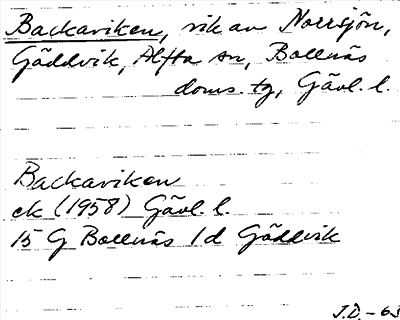 Backaviken, vik av Norrsjön,
Gäddvik, Alfta sn, Bollnäs
doms. tg, Gävl. l.
Backaviken
ek (1958) Gävl. l.
15 G Bollnäs 1d Gäddvik
J.D. - 63